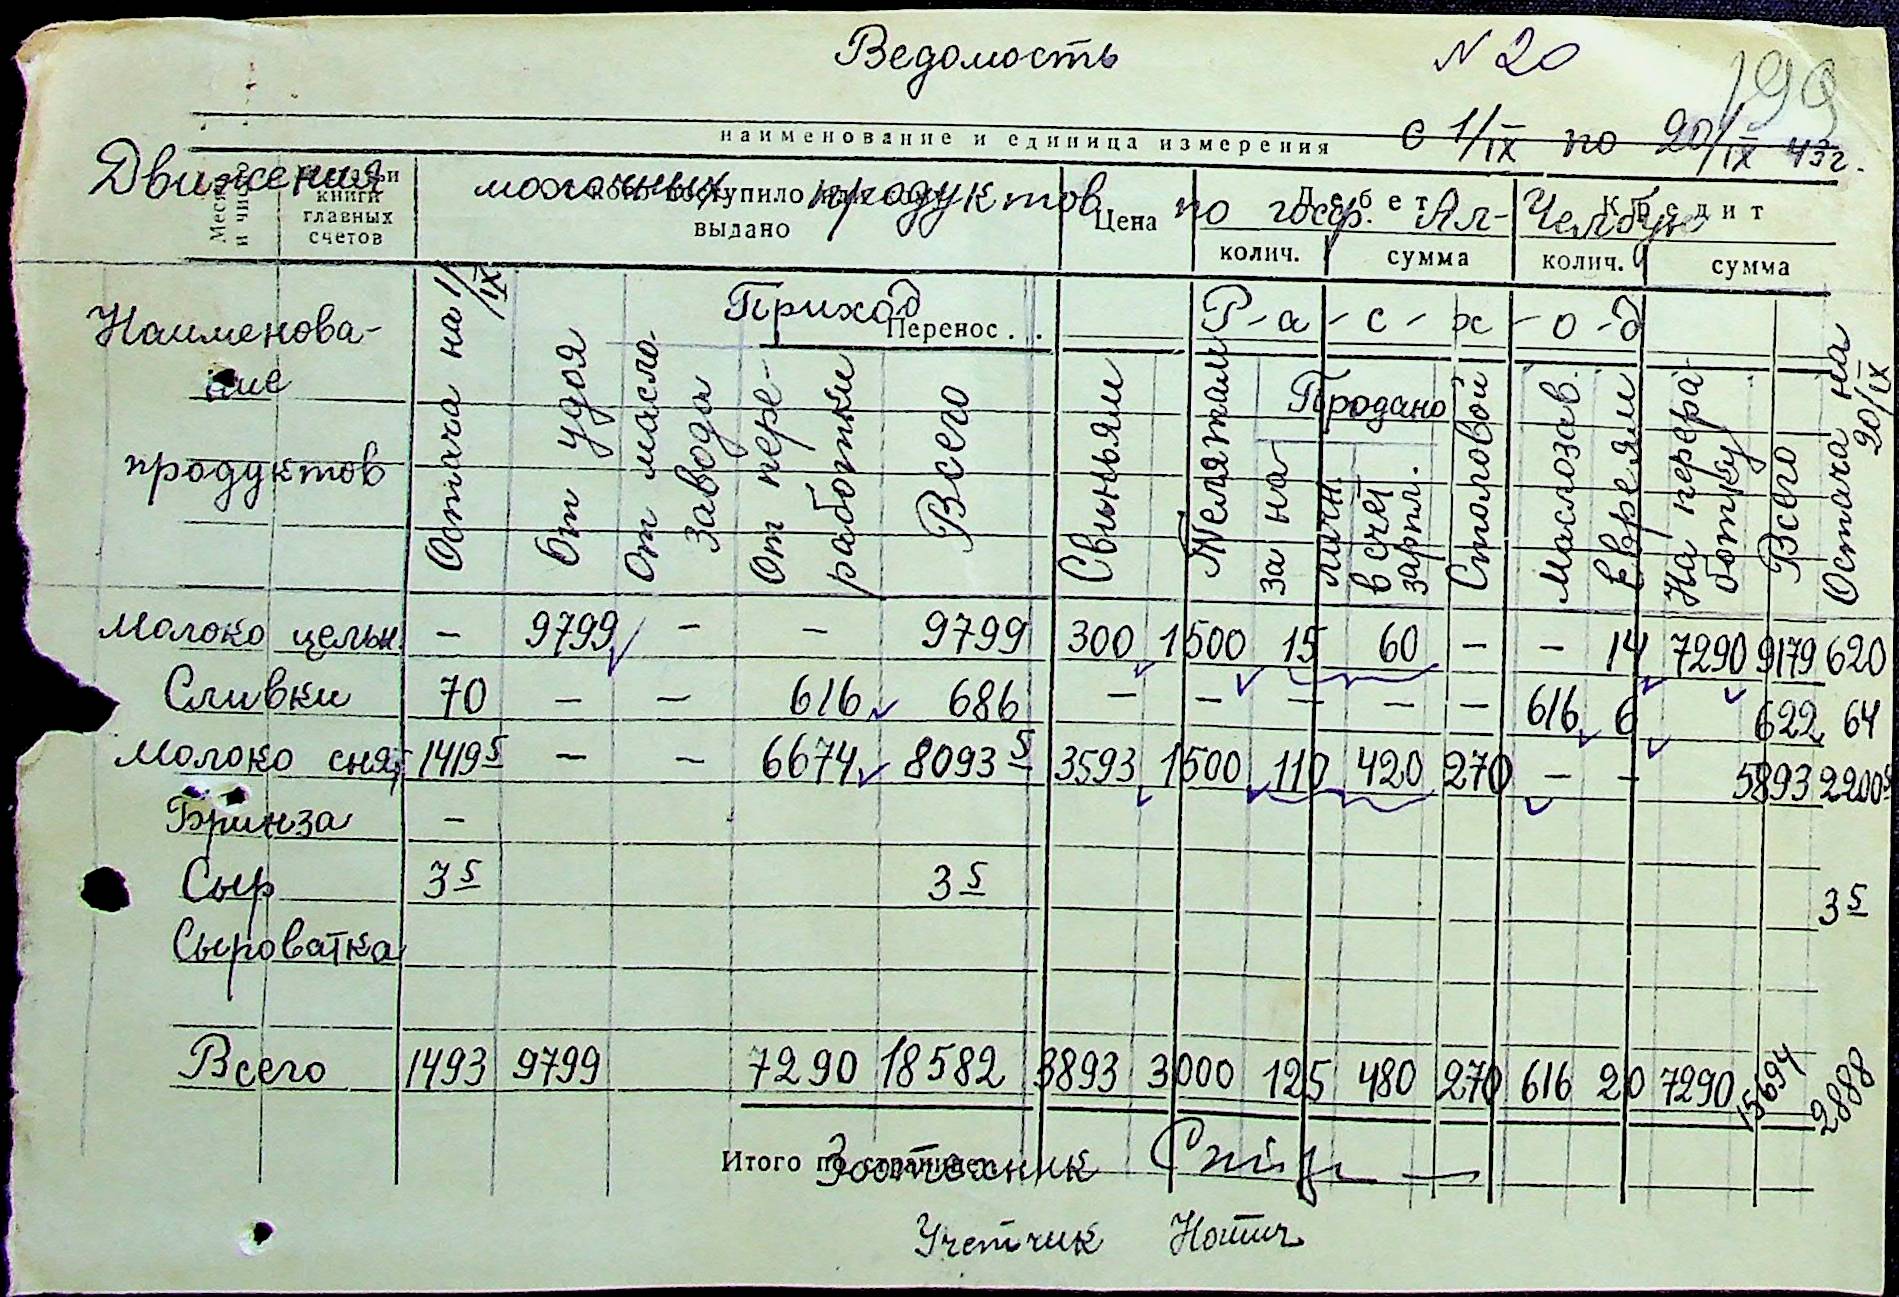 Ведомость № 20
199
наименование и единица измерения с 1/IX по 20/IX 43г.
Движения молочных продуктов по госф. Ал-Челбую
Месяц и число книги главных счетов поступило выдано Цена Дебет Кредит
колич. сумма колич. сумма
Наименова-ние продуктов
Остача на 1/IX
Приход
Перенос . . .
От удоя
От масло завода
От пере-работки
Всего
Р-а-с-х-о-д
Свиньям
Телятам
Продано
за нал
личн. в счёт зарпл.
Столовой
Маслозав.
Евреям
На перера-ботку
Всего
Остача на 20/IX
Молоко цельн. – 9799 – – 9799 300 1500 15 60 – – 14 7290 9179 620
Сливки 70 – – 616 686 – – – – – 616 6 622 64
Молоко снят 1419 5 – – 6674 8093 5 3593 1500 110 420 270 – – 5893 2200 5
Брынза –
Сыр 3 5 3 5 3 5
Сыроватка
Всего 1493 9799 7290 18582 3893 3000 125 480 270 616 20 7290 15694 2888
Итого по странице
Зоотехник
Учетчик